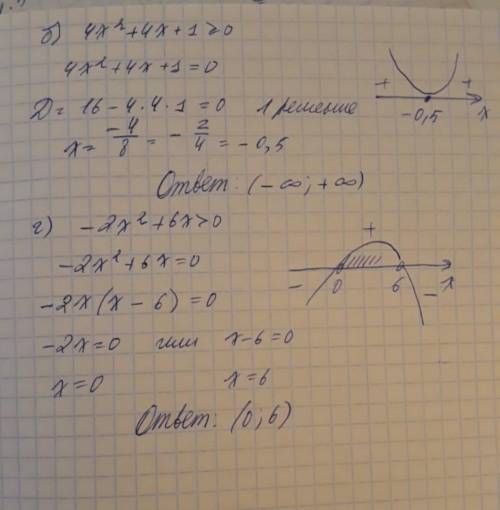 б) 4x²+4x+1≥0
4x²+4x+1=0
Д= 16-4·4·1=0 1 решение
x= -4/8 = -2/4 = -0,5
+ + -0,5 x
Ответ: (-∞; +∞)
г) -2x²+6x>0
-2x²+6x=0
-2x(x-6)=0
-2x=0 или x-6=0
x=0 x=6
+ - 0 6 - x
Ответ: (0; 6)